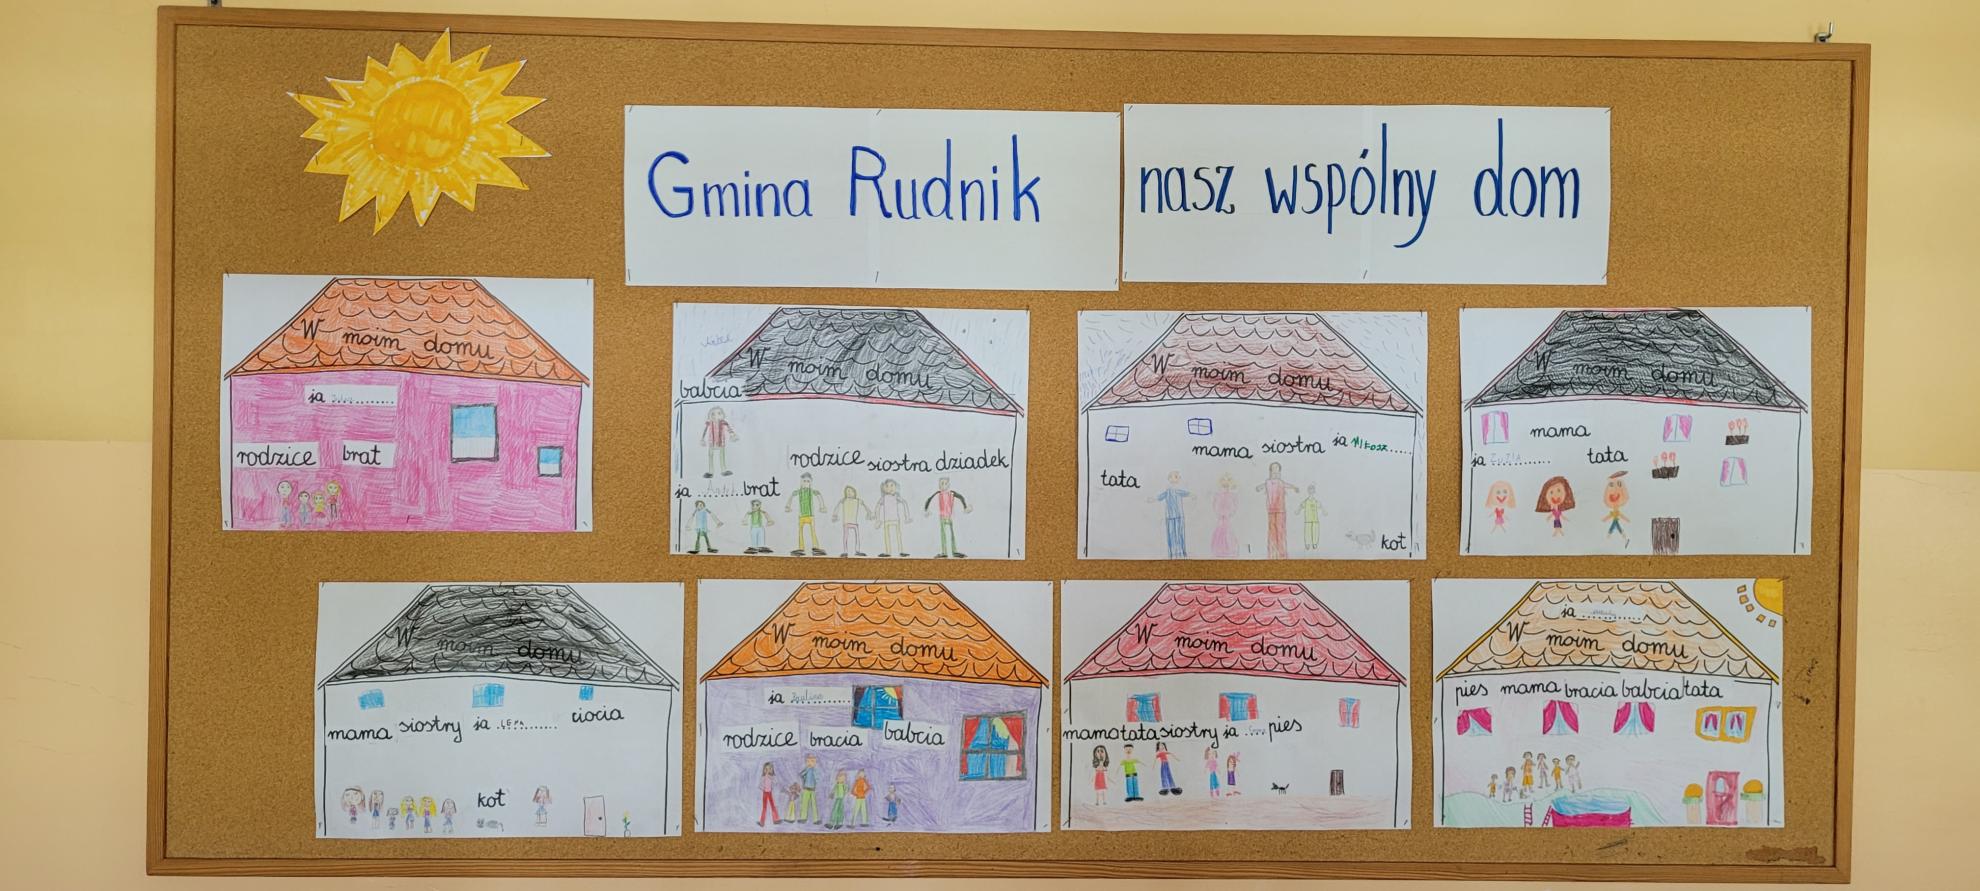 Gmina Rudnik nasz wspólny dom
W moim domu
ja
rodzice brat
W moim domu
babcia
rodzice siostra dziadek
ja brat
W moim domu
mama siostra ja MIŁOSZ
tata
kot
W moim domu
mama
ja ZUZIA tata
W moim domu
mama siostry ja LENA ciocia
kot
W moim domu
ja Paulina
rodzice bracia babcia
W moim domu
mama tata siostry ja pies
ja
W moim domu
pies mama bracia babcia tata